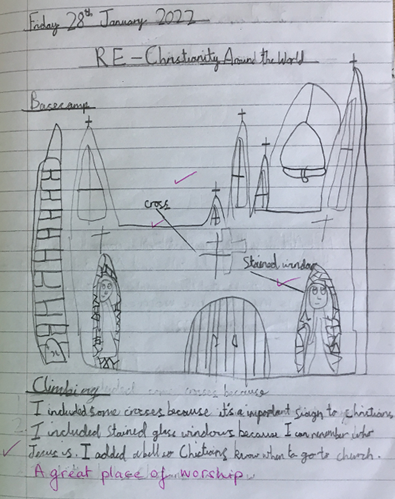 Friday 28th January 2022
RE - Christianity Around the World
Basecamp
cross
Stained window
Climbing
I included some crosses because it's a important to christians
I included stained glass windows because I can remember who
Jesus is. I added a bell so Chistians know when to go to church.
A great place of worship.